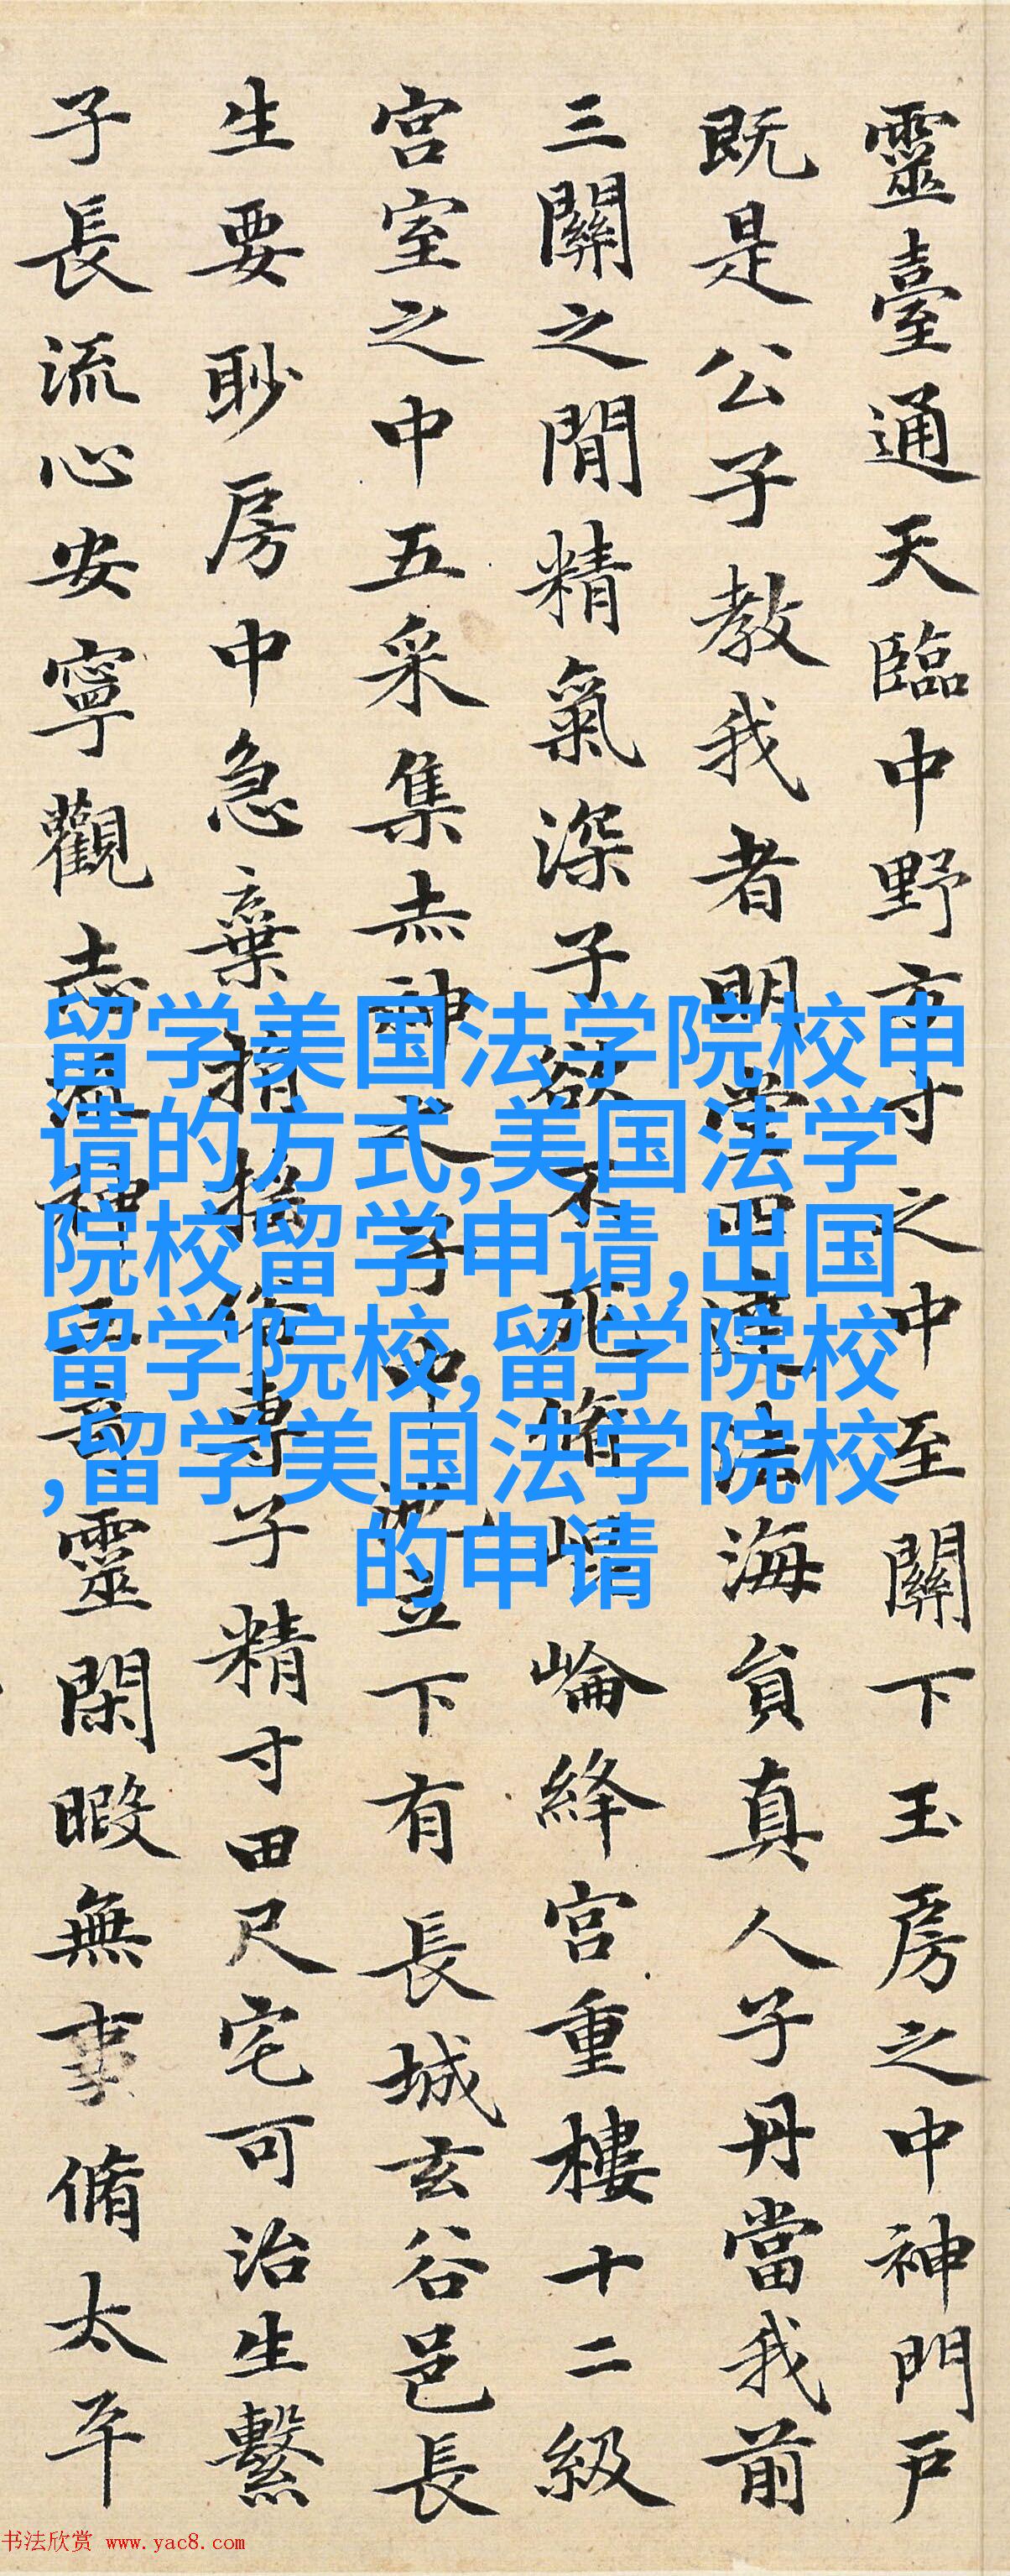 靈臺通天臨中野方寸之中至關下玉房之中神門戶
既是公子教我者明堂四達法海員真人子丹當我前
三關之間精氣深子欲不死脩崐崘絳宮重樓十二級
宮室之中五采集赤神之子中池立下有長城玄谷邑長
生要眇房中急棄捐搖俗專子精寸田尺宅可治生繫
子長流心安寧觀志流神三奇靈閑暇無事脩太平
留学美国法学院校申
请的方式,美国法学
院校留学申请,出国
留学院校,留学院校
,留学美国法学院校
的申请
书法欣赏 www.yac8.com